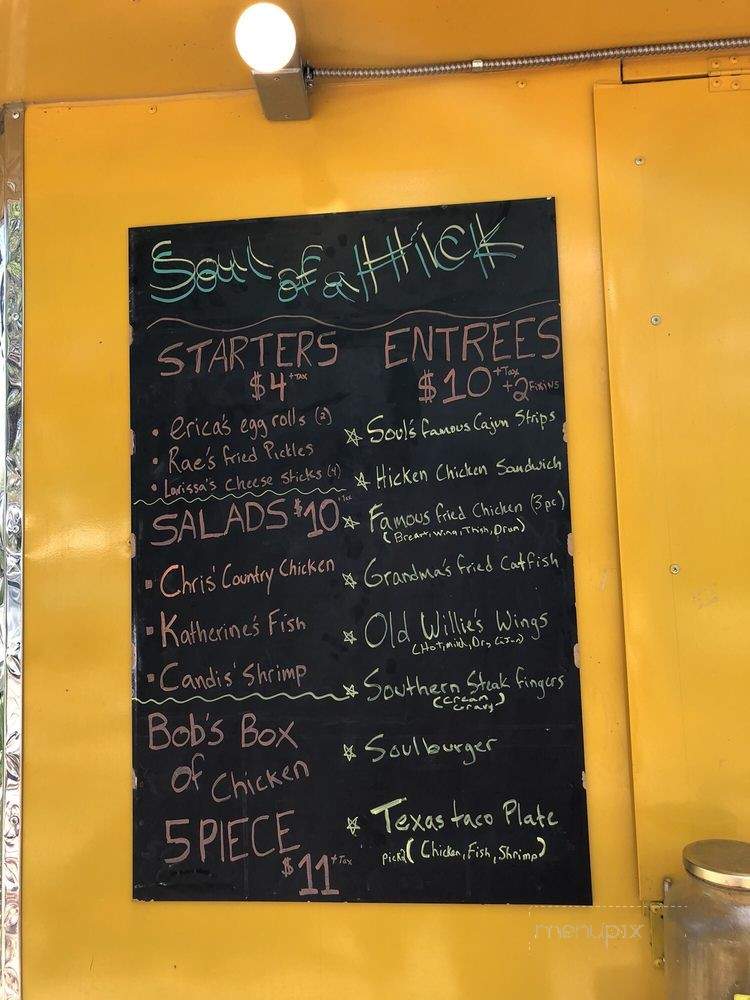 Soul of a Hick
STARTERS
$4 +Tax
• Erica's egg rolls (2)
• Rae's fried Pickles
• Larissa's Cheese Sticks (4)
SALADS $10 +Tax
• Chris' Country Chicken
• Katherine's Fish
• Candis' Shrimp
Bob's Box
of Chicken
5 PIECE
$11 +Tax
ENTREES
$10 +Tax +2 Fixins
☆ Soul's famous Cajun Strips
☆ Hicken Chicken Sandwich
☆ Famous fried Chicken (3pc)
(Breast, Wing, Thigh, Drum)
☆ Grandma's fried Catfish
☆ Old Willie's Wings
(Hot, mild, Dry, Cajun)
☆ Southern Steak fingers
(Cream
Gravy)
☆ Soulburger
☆ Texas taco Plate
pick 2 (Chicken, Fish, Shrimp)
menupix